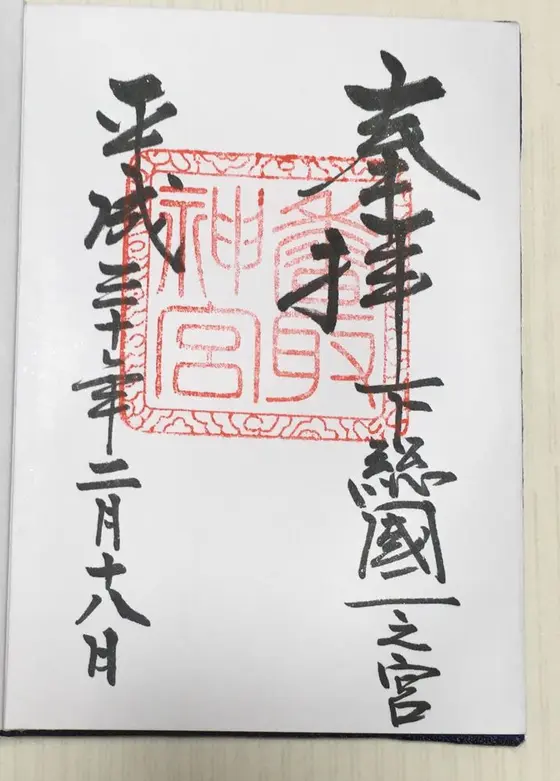 奉拝
下総國一之宮
香取
神宮
平成三十年二月十八日